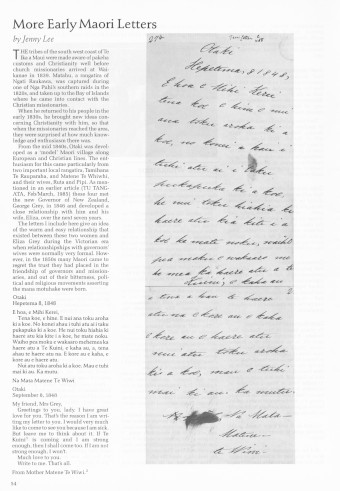 More Early Maori Letters
by Jenny Lee
THE tribes of the south-west coast of Te
Ika a Maui were made aware of pakeha
customs and Christianity well before
church missionaries arrived at Wai-
kanae in 1839. Matahu, a
Ngati Raukawa, was captured during
one of Nga Puhi's southern raids in the
1820s, and taken up to the Bay of Islands
where he came into contact with the
Christian missionaries.
When he returned to his people in the
early 1830s, he brought new ideas con-
cerning Christianity with him, so that
when the missionaries reached the area,
they were surprised at how much know-
ledge and enthusiasm there was.
From the mid 1840s, Otaki was devel-
oped as a 'model' Maori village along
European and Christian lines. The ent-
husiasm for this came particularly from
two important local rangatira, Tamihana
Te Rauparaha, and Matene Te Whiwhi,
and their wives, Ruta and Pipi. As men-
tioned in an earlier article (TU TANG-
ATA, Feb/March, 1985) these four met
the new Governor of New Zealand,
George Grey, in 1845 and developed a
close relationship with him and his
wife, Eliza, over the next seven years.
The letters I include here give an idea
of the warm and easy relationship that
existed between these two women and
Eliza Grey during the Victorian era
when relationships with governors'
wives were normally very formal. How-
ever, in the 1850s many Maori came to
regret the trust they had placed in the
friendship of governors and mission-
aries, and out of their bitterness, poli-
tical and religious movements asserting
the mana motuhake were born.
Otaki
Hepetema 8, 1848
E hoa, e Mihi Kerei,
Tena koe, e hine. E nui ana toku aroha
ki a koe. No konei ahau i tuhi atu ai i taku
pukapuka ki a koe. He nui toku hiahia ki
haere atu kia kite i a koe, he mate noku.
Waiho pea moku e wakaaro mehemea ka
haere atu a Te Kuini, e kaha au, a, tena
ahau te haere atu na. E kore au e kaha, e
kore au e haere atu.
Noi atu toku aroha ki a koe. Mau e tuhi
mai ki au. Ka mutu.
Na Mata Matene Te Wiwi
Otaki
September 8, 1848
My friend, Mrs Grey,
Greetings to you, lady. I have great
love for you. That's the reason I am writ-
ing my letter to you. I would very much
like to come to see you because I am sick.
But leave me to think about it. If Te
Kuini is coming and I am strong
enough, then I shall come too. If I am not
strong enough, I won't.
Much love to you.
Write to me. That's all.
From Mother Matene Te Wiwi.
Otaki
Hepetema, 8, 1848,
E hoa e Mihi Kerei
tena koe, e hine e nui
ana toku aroha ki a
koe, no konei ahau i
tuhi atu ai i taku
pukapuka ki a koe
he nui toku hiahia ki
haere atu kia kite i a
koe he mate noku, waiho
pea moku e wakaaro me
he mea ka haere atu a te
Kuini, e kaha au
a tena ahau te haere
atu na e kore au e kaha
e kore au e haere atu
nui atu toku aroha
ki a koe, mau e tuhi
mai ki au. Ka mutu
Na Mata
Matene
te Wiwi
54